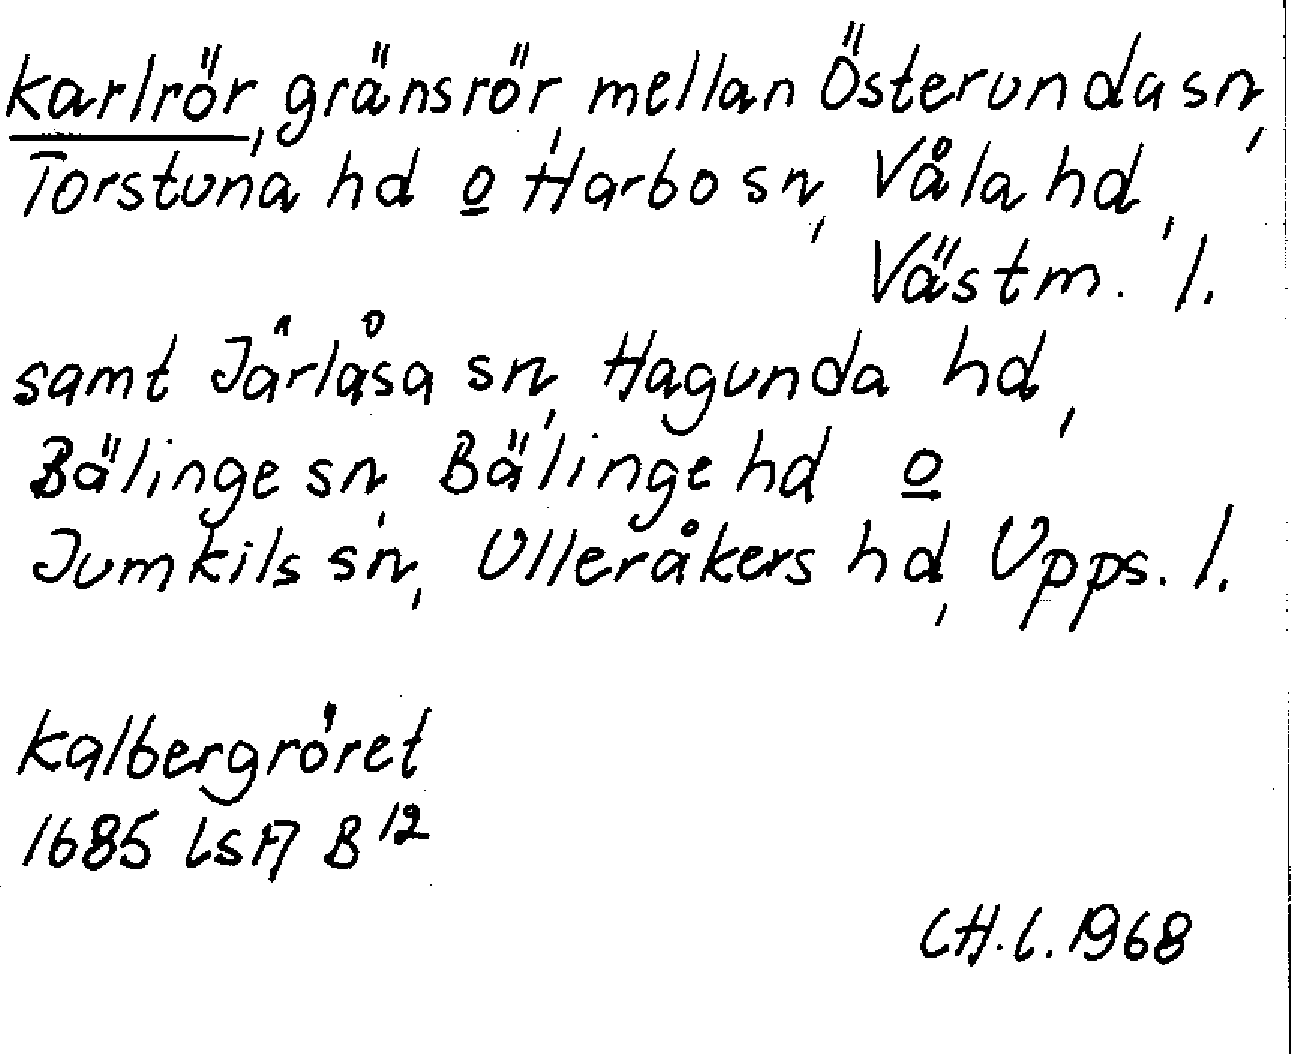 Karlrör, gränsrör, mellan Österunda sn,
Torstuna hd o Harbo sn, Våla hd,
Västm. l.
samt Järlåsa sn, Hagunda hd,
Bälinge sn, Bälinge hd o
Jumkils sn, Ulleråkers hd, Upps. l.
Kalbergröret
1685 LSA B 12
CH.L. 1968